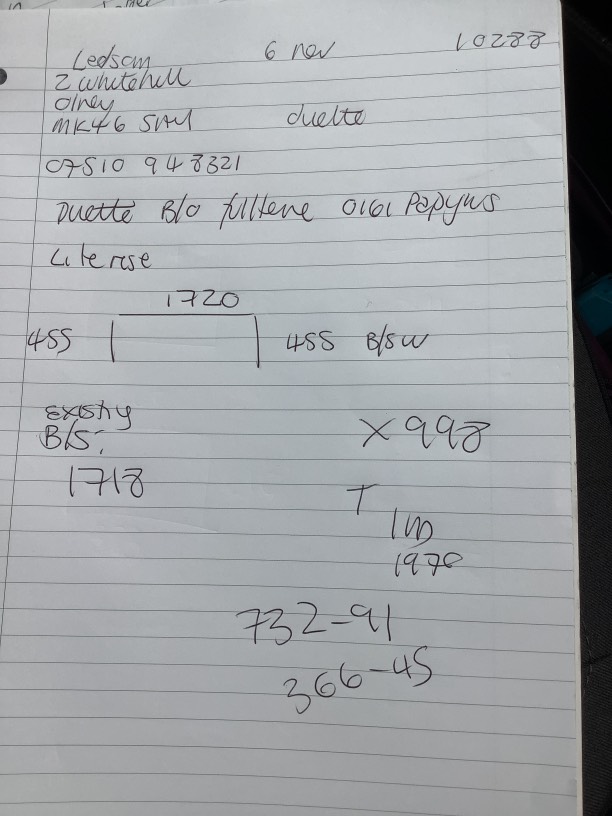 Ledsam 6 nov 10288
2 Whitehill
Olney
MK46
duette
07510 948321
Duette B/O fulltone 0161 Papyrus
Literise
1720
455 455 B/S W
existing
B/S:
1718
X 998
T
1970
732-91
366-45